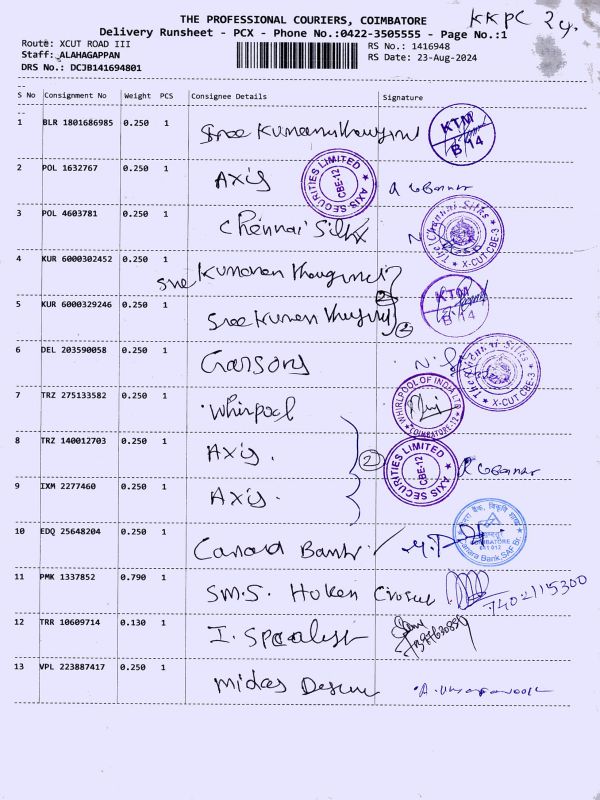 THE PROFESSIONAL COURIERS, COIMBATORE
KKPC 24.
Delivery Runsheet - PCX - Phone No.:0422-3505555 - Page No.:1
Route: XCUT ROAD III
RS No.: 1416948
Staff: ALAHAGAPPAN
RS Date: 23-Aug-2024
DRS No.: DCJB141694801
S No Consignment No Weight PCS Consignee Details Signature
1 BLR 1801686985 0.250 1 Sree KTM B 14
2 POL 1632767 0.250 1 Axis AXIS SECURITIES LIMITED CBE-12
3 POL 4603781 0.250 1 Chennai Silks The Chennai Silks X-CUT CBE-3
4 KUR 6000302452 0.250 1 sree Kumaran
5 KUR 6000329246 0.250 1 Sree Kumaran 2 KTM B 14
6 DEL 203590058 0.250 1 The Chennai Silks X-CUT CBE-3
7 TRZ 275133582 0.250 1 Whirlpool WHIRLPOOL OF INDIA LTD COIMBATORE-12
8 TRZ 140012703 0.250 1 Axis. 2 AXIS SECURITIES LIMITED CBE-12
9 IXM 2277460 0.250 1 Axis.
10 EDQ 25648204 0.250 1 Canara Bank COIMBATORE 641 012 Canara Bank, SAF Br.
11 PMK 1337852 0.790 1 S.M.S. Hoken 7402115300
12 TRR 10609714 0.130 1 I. Specalist
13 VPL 223887417 0.250 1 Midas